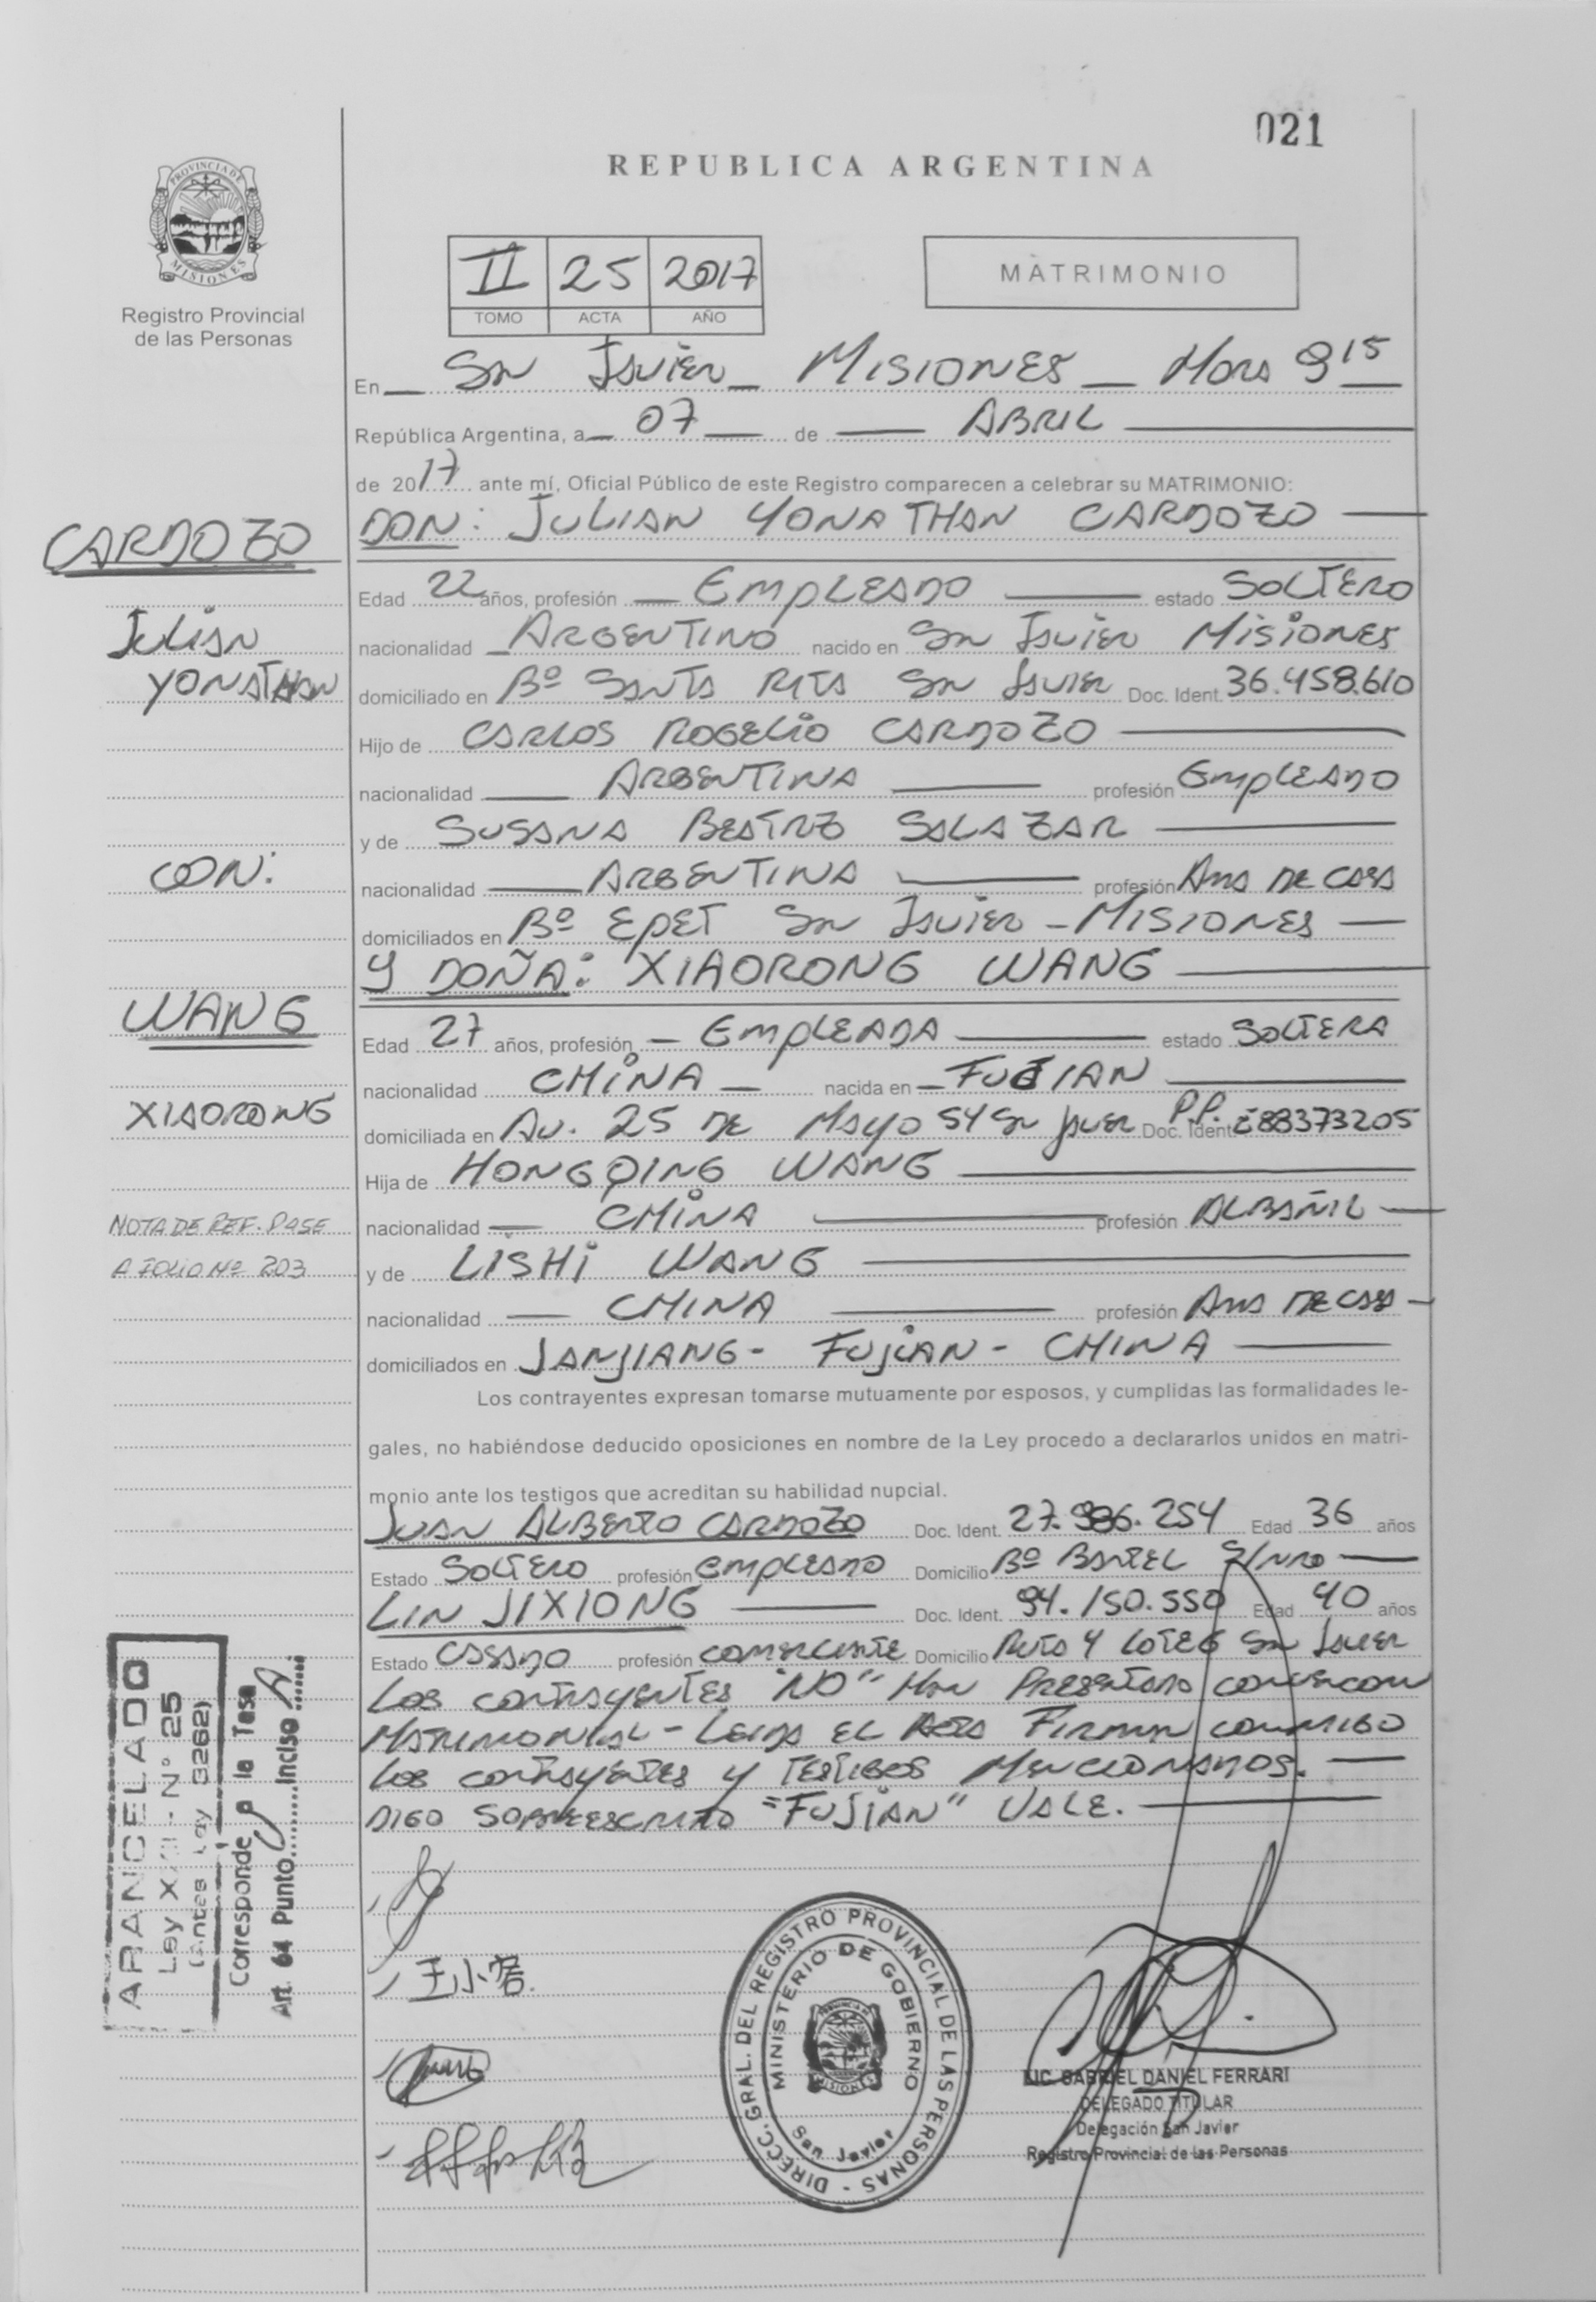 021
REPUBLICA ARGENTINA
PROVINCIA DE
MISIONES
Registro Provincial
de las Personas
II 25 2017
TOMO ACTA AÑO
MATRIMONIO
En San Javier Misiones Hora 9 15
República Argentina, a 07 de ABRIL
de 2017 ante mí, Oficial Público de este Registro comparecen a celebrar su MATRIMONIO:
CARDOZO
JULIAN
YONATHAN
CON:
WANG
XIAORONG
NOTA DE REF. PASE
A FOLIO Nº 203
DON: JULIAN YONATHAN CARDOZO
Edad 22 años, profesión EMPLEADO estado SOLTERO
nacionalidad ARGENTINO nacido en San Javier Misiones
domiciliado en Bº SANTA RITA San Javier Doc. Ident. 36.458.610
Hijo de CARLOS ROGELIO CARDOZO
nacionalidad ARGENTINA profesión EMPLEADO
y de SUSANA BEATRIZ SALAZAR
nacionalidad ARGENTINA profesión AMA DE CASA
domiciliados en Bº EPET San Javier - MISIONES
Y DOÑA: XIAORONG WANG
Edad 27 años, profesión EMPLEADA estado SOLTERA
nacionalidad CHINA nacida en FUJIAN
domiciliada en Av. 25 DE Mayo 54 San Javier Doc. Ident. P.P. E88373205
Hija de HONGQING WANG
nacionalidad CHINA profesión ALBAÑIL
y de LISHI WANG
nacionalidad CHINA profesión AMA DE CASA
domiciliados en JANJIANG - FUJIAN - CHINA
Los contrayentes expresan tomarse mutuamente por esposos, y cumplidas las formalidades le-
gales, no habiéndose deducido oposiciones en nombre de la Ley procedo a declararlos unidos en matri-
monio ante los testigos que acreditan su habilidad nupcial.
JUAN ALBERTO CARDOZO Doc. Ident. 27.986.254 Edad 36 años
Estado SOLTERO profesión EMPLEADO Domicilio Bº S/NRO
LIN JIXIONG Doc. Ident. 94.150.550 Edad 40 años
Estado CASADO profesión COMERCIANTE Domicilio RUTA 4 LOTE 6 San Javier
LOS CONTRAYENTES "NO" HAN PRESENTADO CONVENCION
MATRIMONIAL - LEIDA EL ACTA FIRMAN CONMIGO
LOS CONTRAYENTES Y TESTIGOS MENCIONADOS.
DIGO SOBREESCRITO "FUJIAN" VALE.
ARANCELADO
Ley XXII - N° 25
(Antes Ley 3262)
Corresponde a la Tasa
Art. 64 Punto......Inciso A......
王小容.
DIRECC. GRAL. DEL REGISTRO PROVINCIAL DE LAS PERSONAS -
MINISTERIO DE GOBIERNO
MISIONES
San Javier
LIC. GABRIEL DANIEL FERRARI
DELEGADO TITULAR
Delegación San Javier
Registro Provincial de las Personas